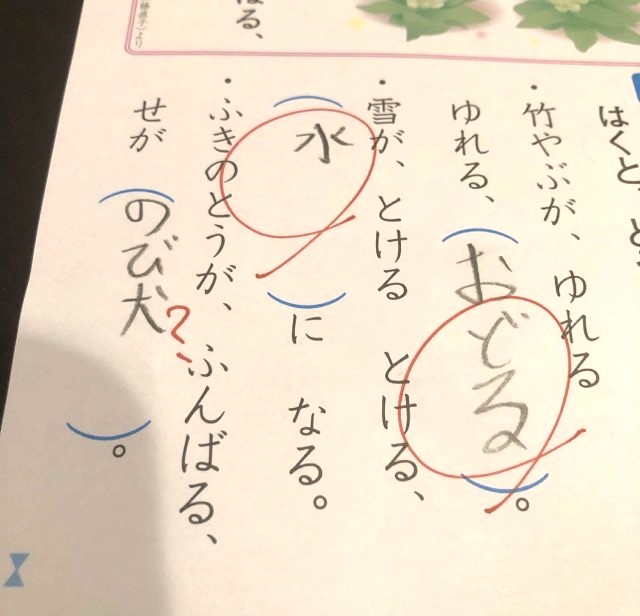 はくと、
・竹やぶが、ゆれる
ゆれる、(おどる)。
・雪が、とける とける、
(水)に なる。
・ふきのとうが、ふんばる、
せが(のび犬?)。
ばる、
より